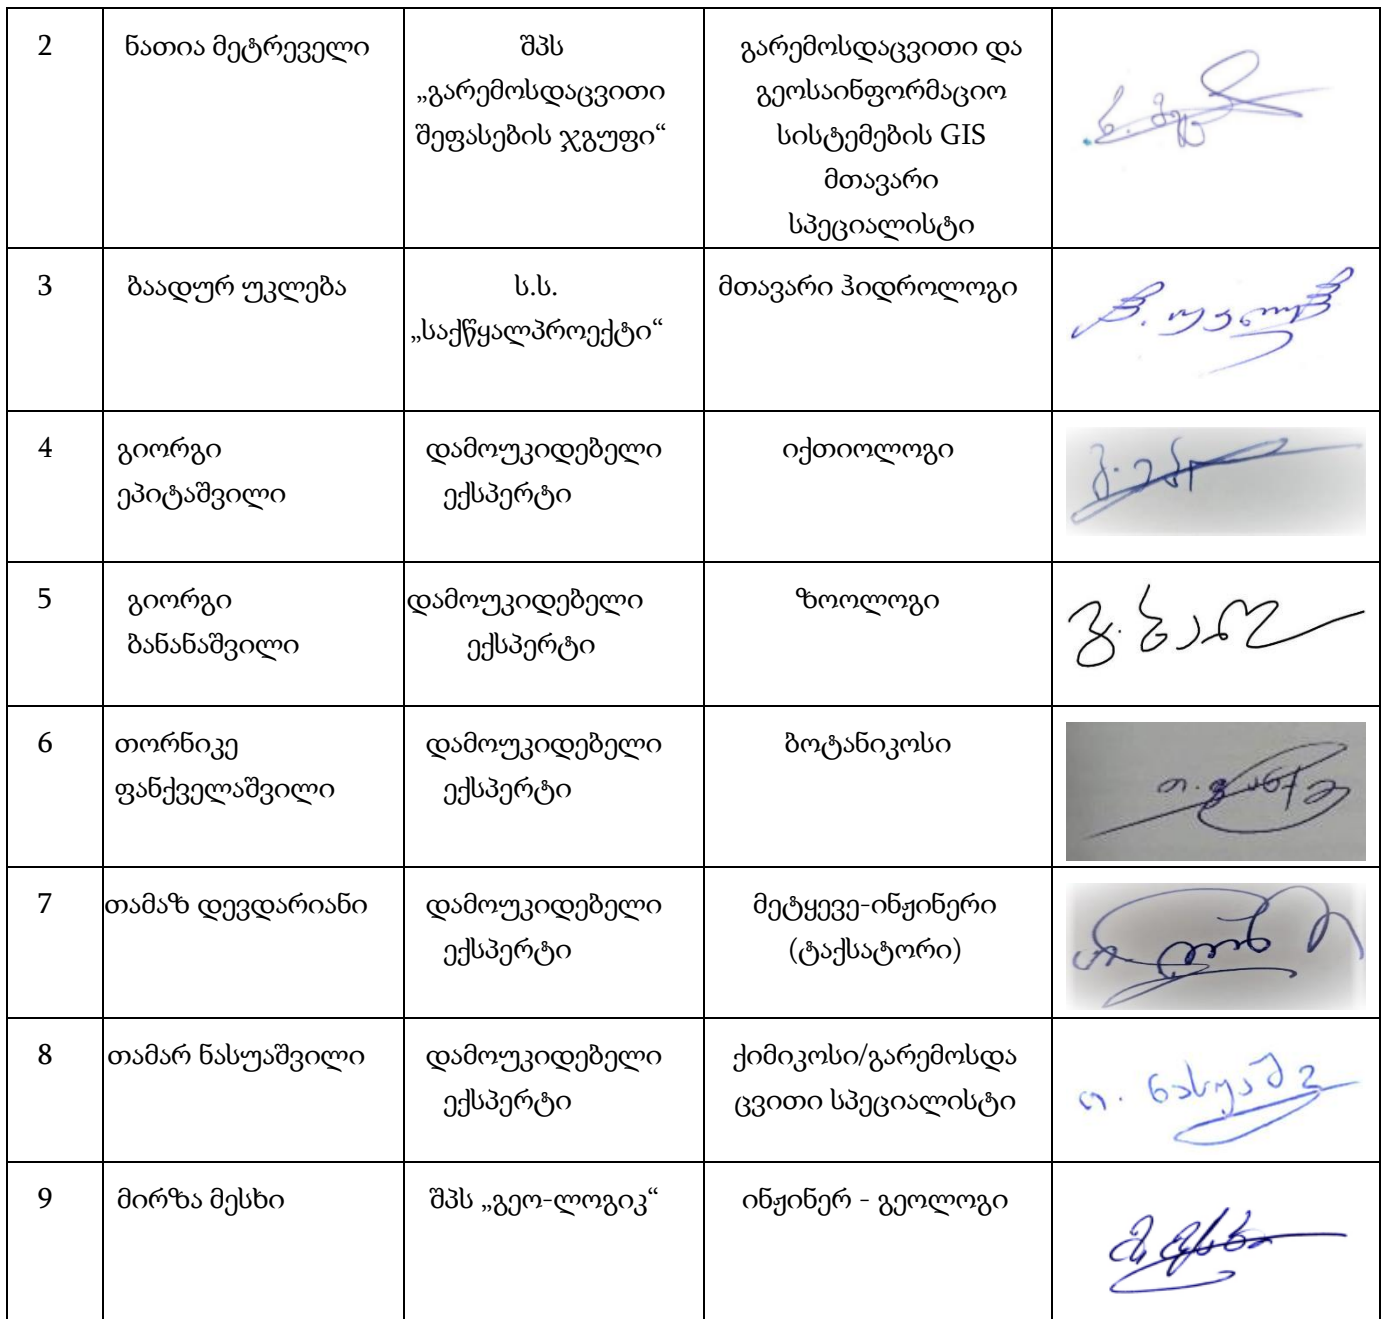 2
ნათია მეტრეველი
შპს
„გარემოსდაცვითი
შეფასების ჯგუფი“
გარემოსდაცვითი და
გეოსაინფორმაციო
სისტემების GIS
მთავარი
სპეციალისტი
3
ბაადურ უკლება
ს.ს.
„საქწყალპროექტი“
მთავარი ჰიდროლოგი
4
გიორგი
ეპიტაშვილი
დამოუკიდებელი
ექსპერტი
იქთიოლოგი
5
გიორგი
ბანანაშვილი
დამოუკიდებელი
ექსპერტი
ზოოლოგი
6
თორნიკე
ფანქველაშვილი
დამოუკიდებელი
ექსპერტი
ბოტანიკოსი
7
თამაზ დევდარიანი
დამოუკიდებელი
ექსპერტი
მეტყევე-ინჟინერი
(ტაქსატორი)
8
თამარ ნასუაშვილი
დამოუკიდებელი
ექსპერტი
ქიმიკოსი/გარემოსდა
ცვითი სპეციალისტი
9
მირზა მესხი
შპს „გეო-ლოგიკ“
ინჟინერ - გეოლოგი